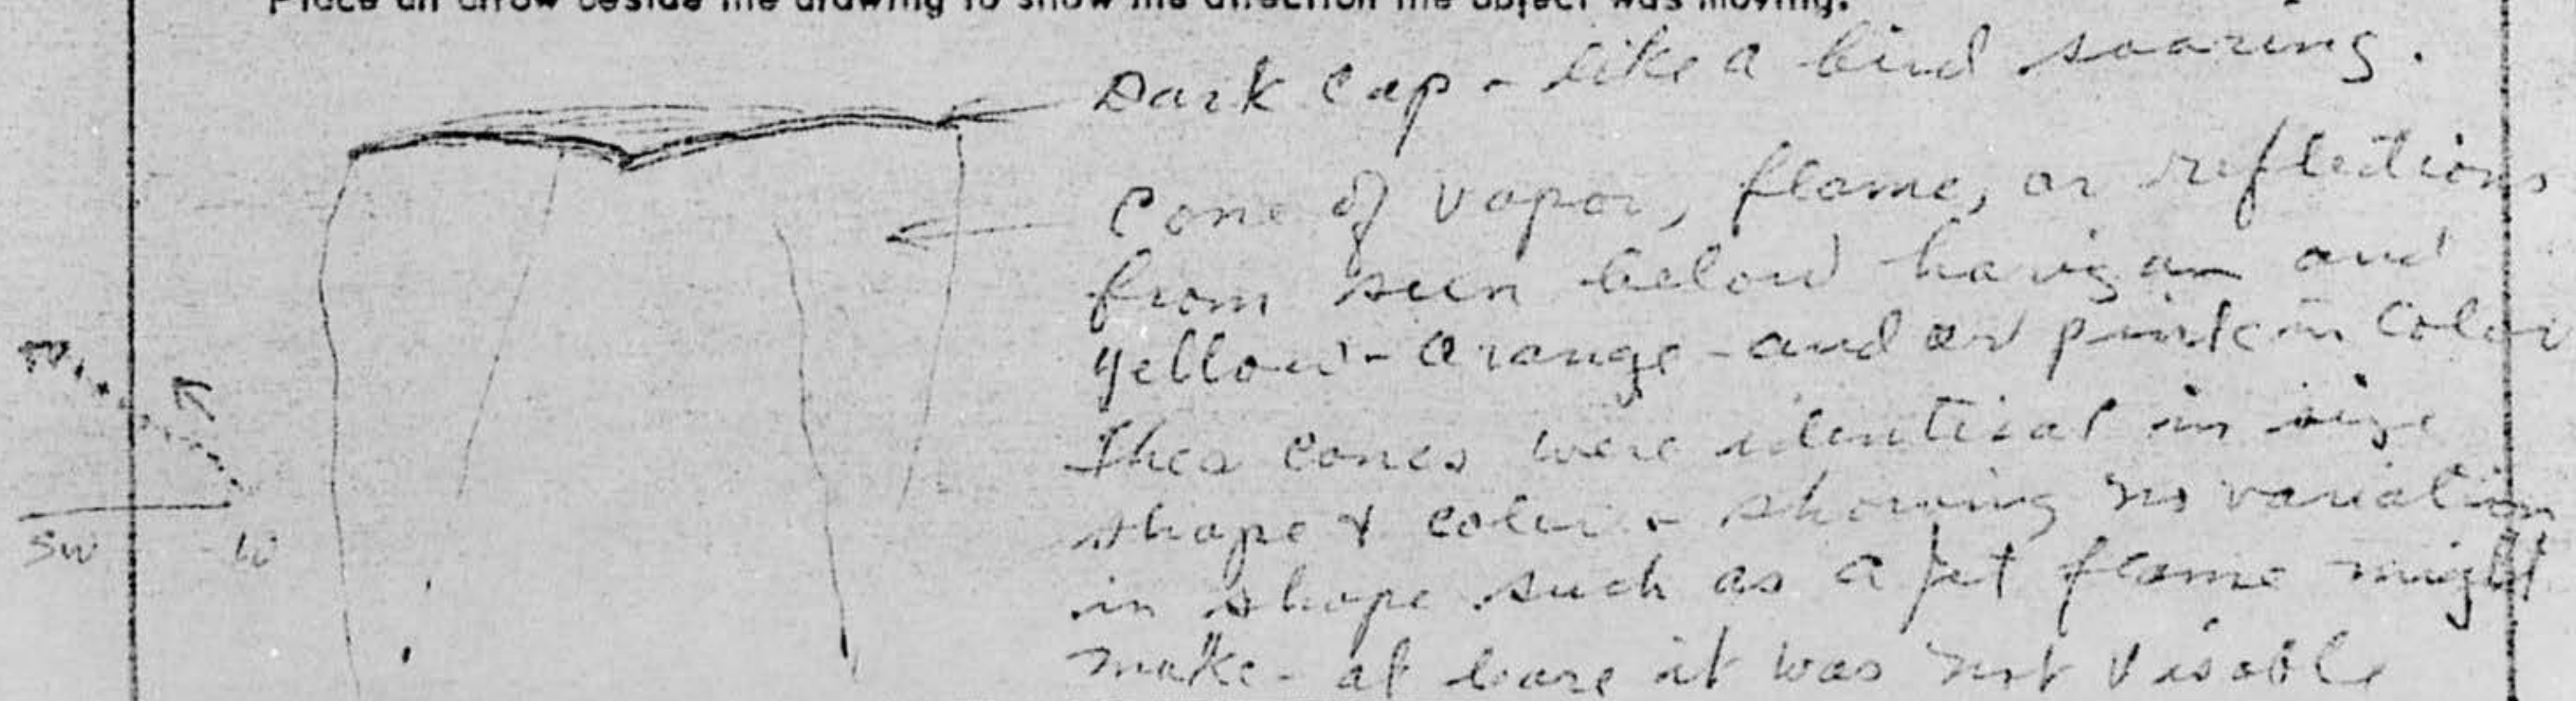 Place an arrow beside the drawing to show the direction the object was moving.
Dark Cap - like a bird soaring.
Cone of vapor, flame, or reflections
from sun below horizon and
yellow - orange - and or pink in color
Thes cones were identical in size
shape & color - showing no variation
in shape such as a jet flame might
make - at it was not visable
SW W